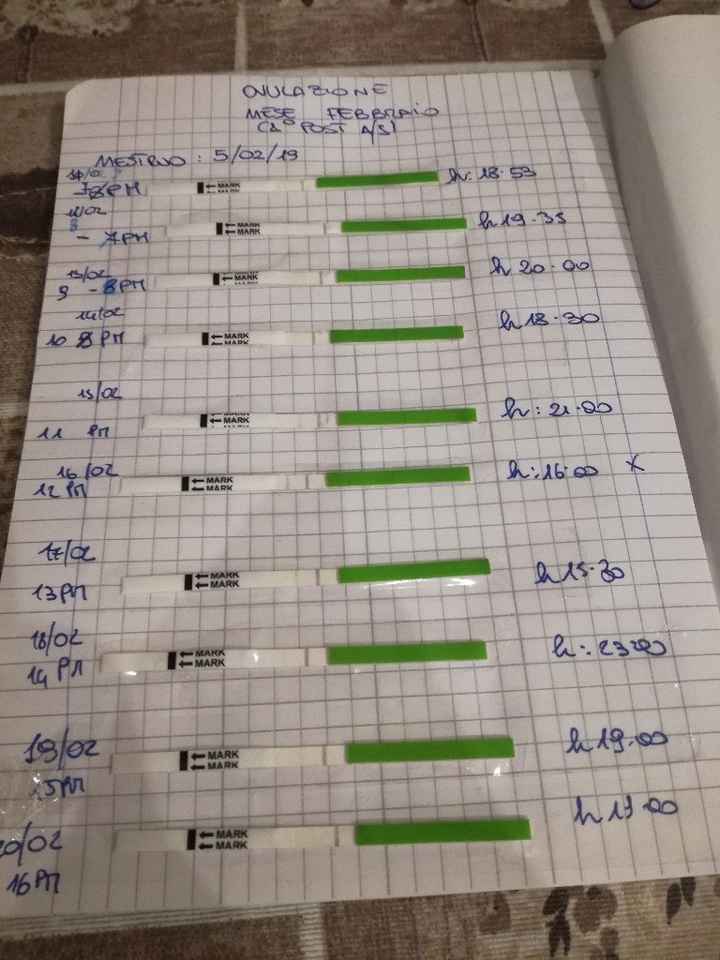 OVULAZIONE
MESE FEBBRAIO
POST
MESTRUO : 5/02/19
8PM ← MARK h: 18.53
← MARK
← MARK h 19.35
- 7PM ← MARK
13/02 ← MARK h 20.00
9 - 8PM MARK
14/02
10 8 PM ← MARK h 18.30
MARK
15/02
11 PM ← MARK h: 21.00
16/02 ← MARK h: 16.00 X
12 PM ← MARK
17/02
13 PM ← MARK h 15.30
← MARK
18/02 ← MARK h: 23.00
14 PM ← MARK
19/02 ← MARK h 19.00
15PM ← MARK
20/02 ← MARK h 19.00
16 PM ← MARK